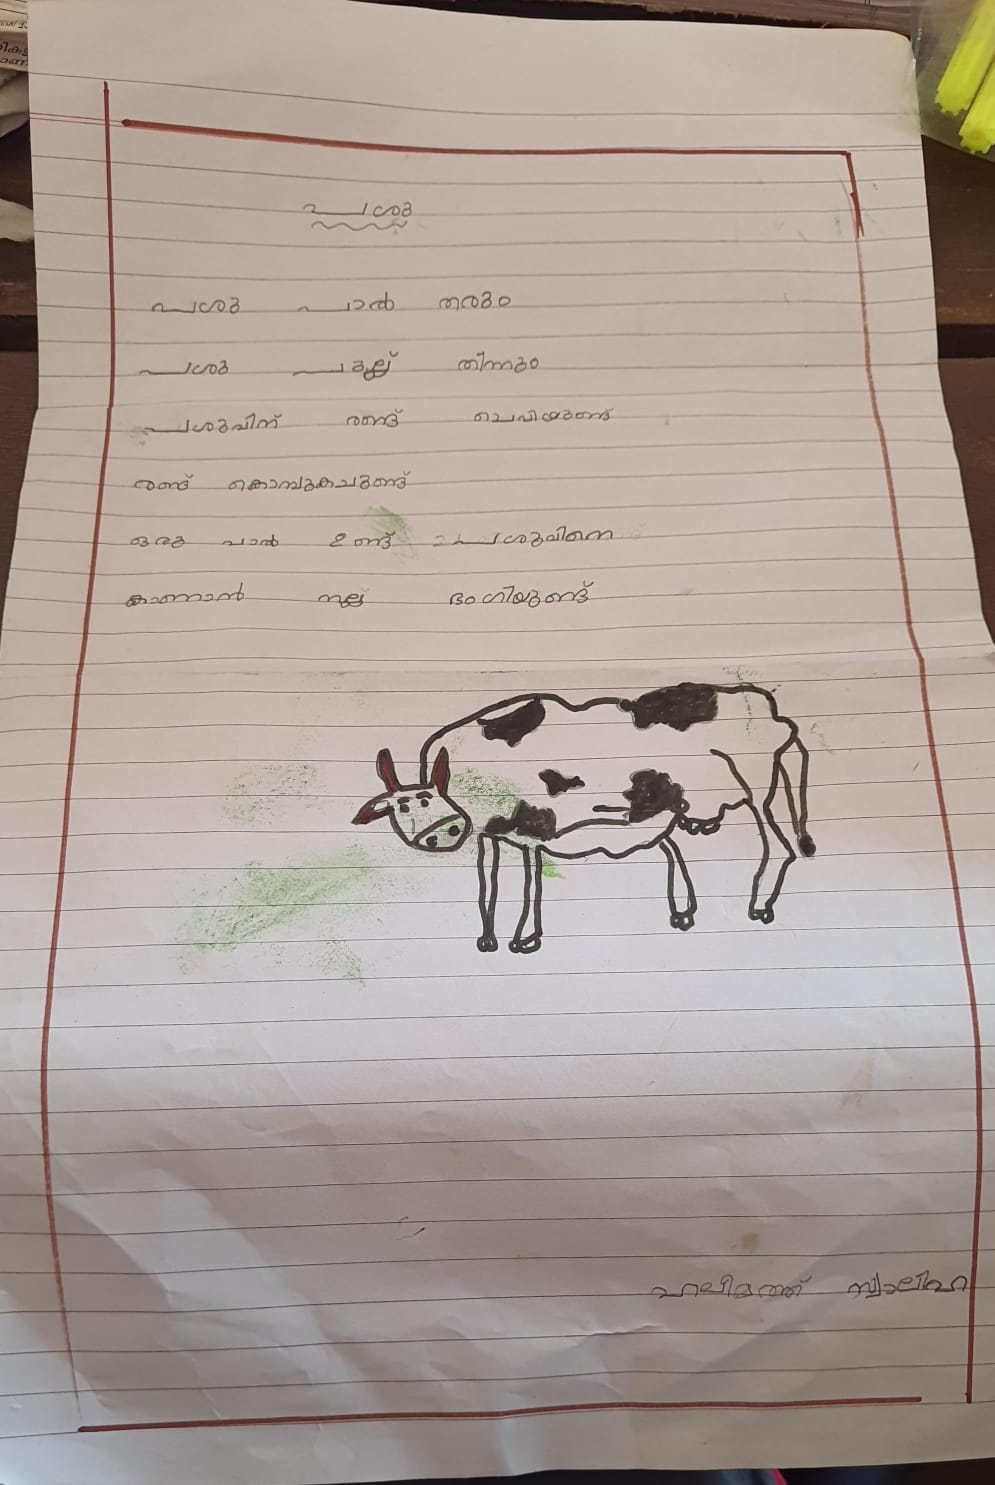 പശു
പശു പാൽ തരും
പശു പുല്ല് തിന്നും
പശുവിന് രണ്ട് ചെവിയുണ്ട്
രണ്ട് കൊമ്പുകളുണ്ട്
ഒരു വാൽ ഉണ്ട് പശുവിനെ
കാണാൻ നല്ല ഭംഗിയുണ്ട്